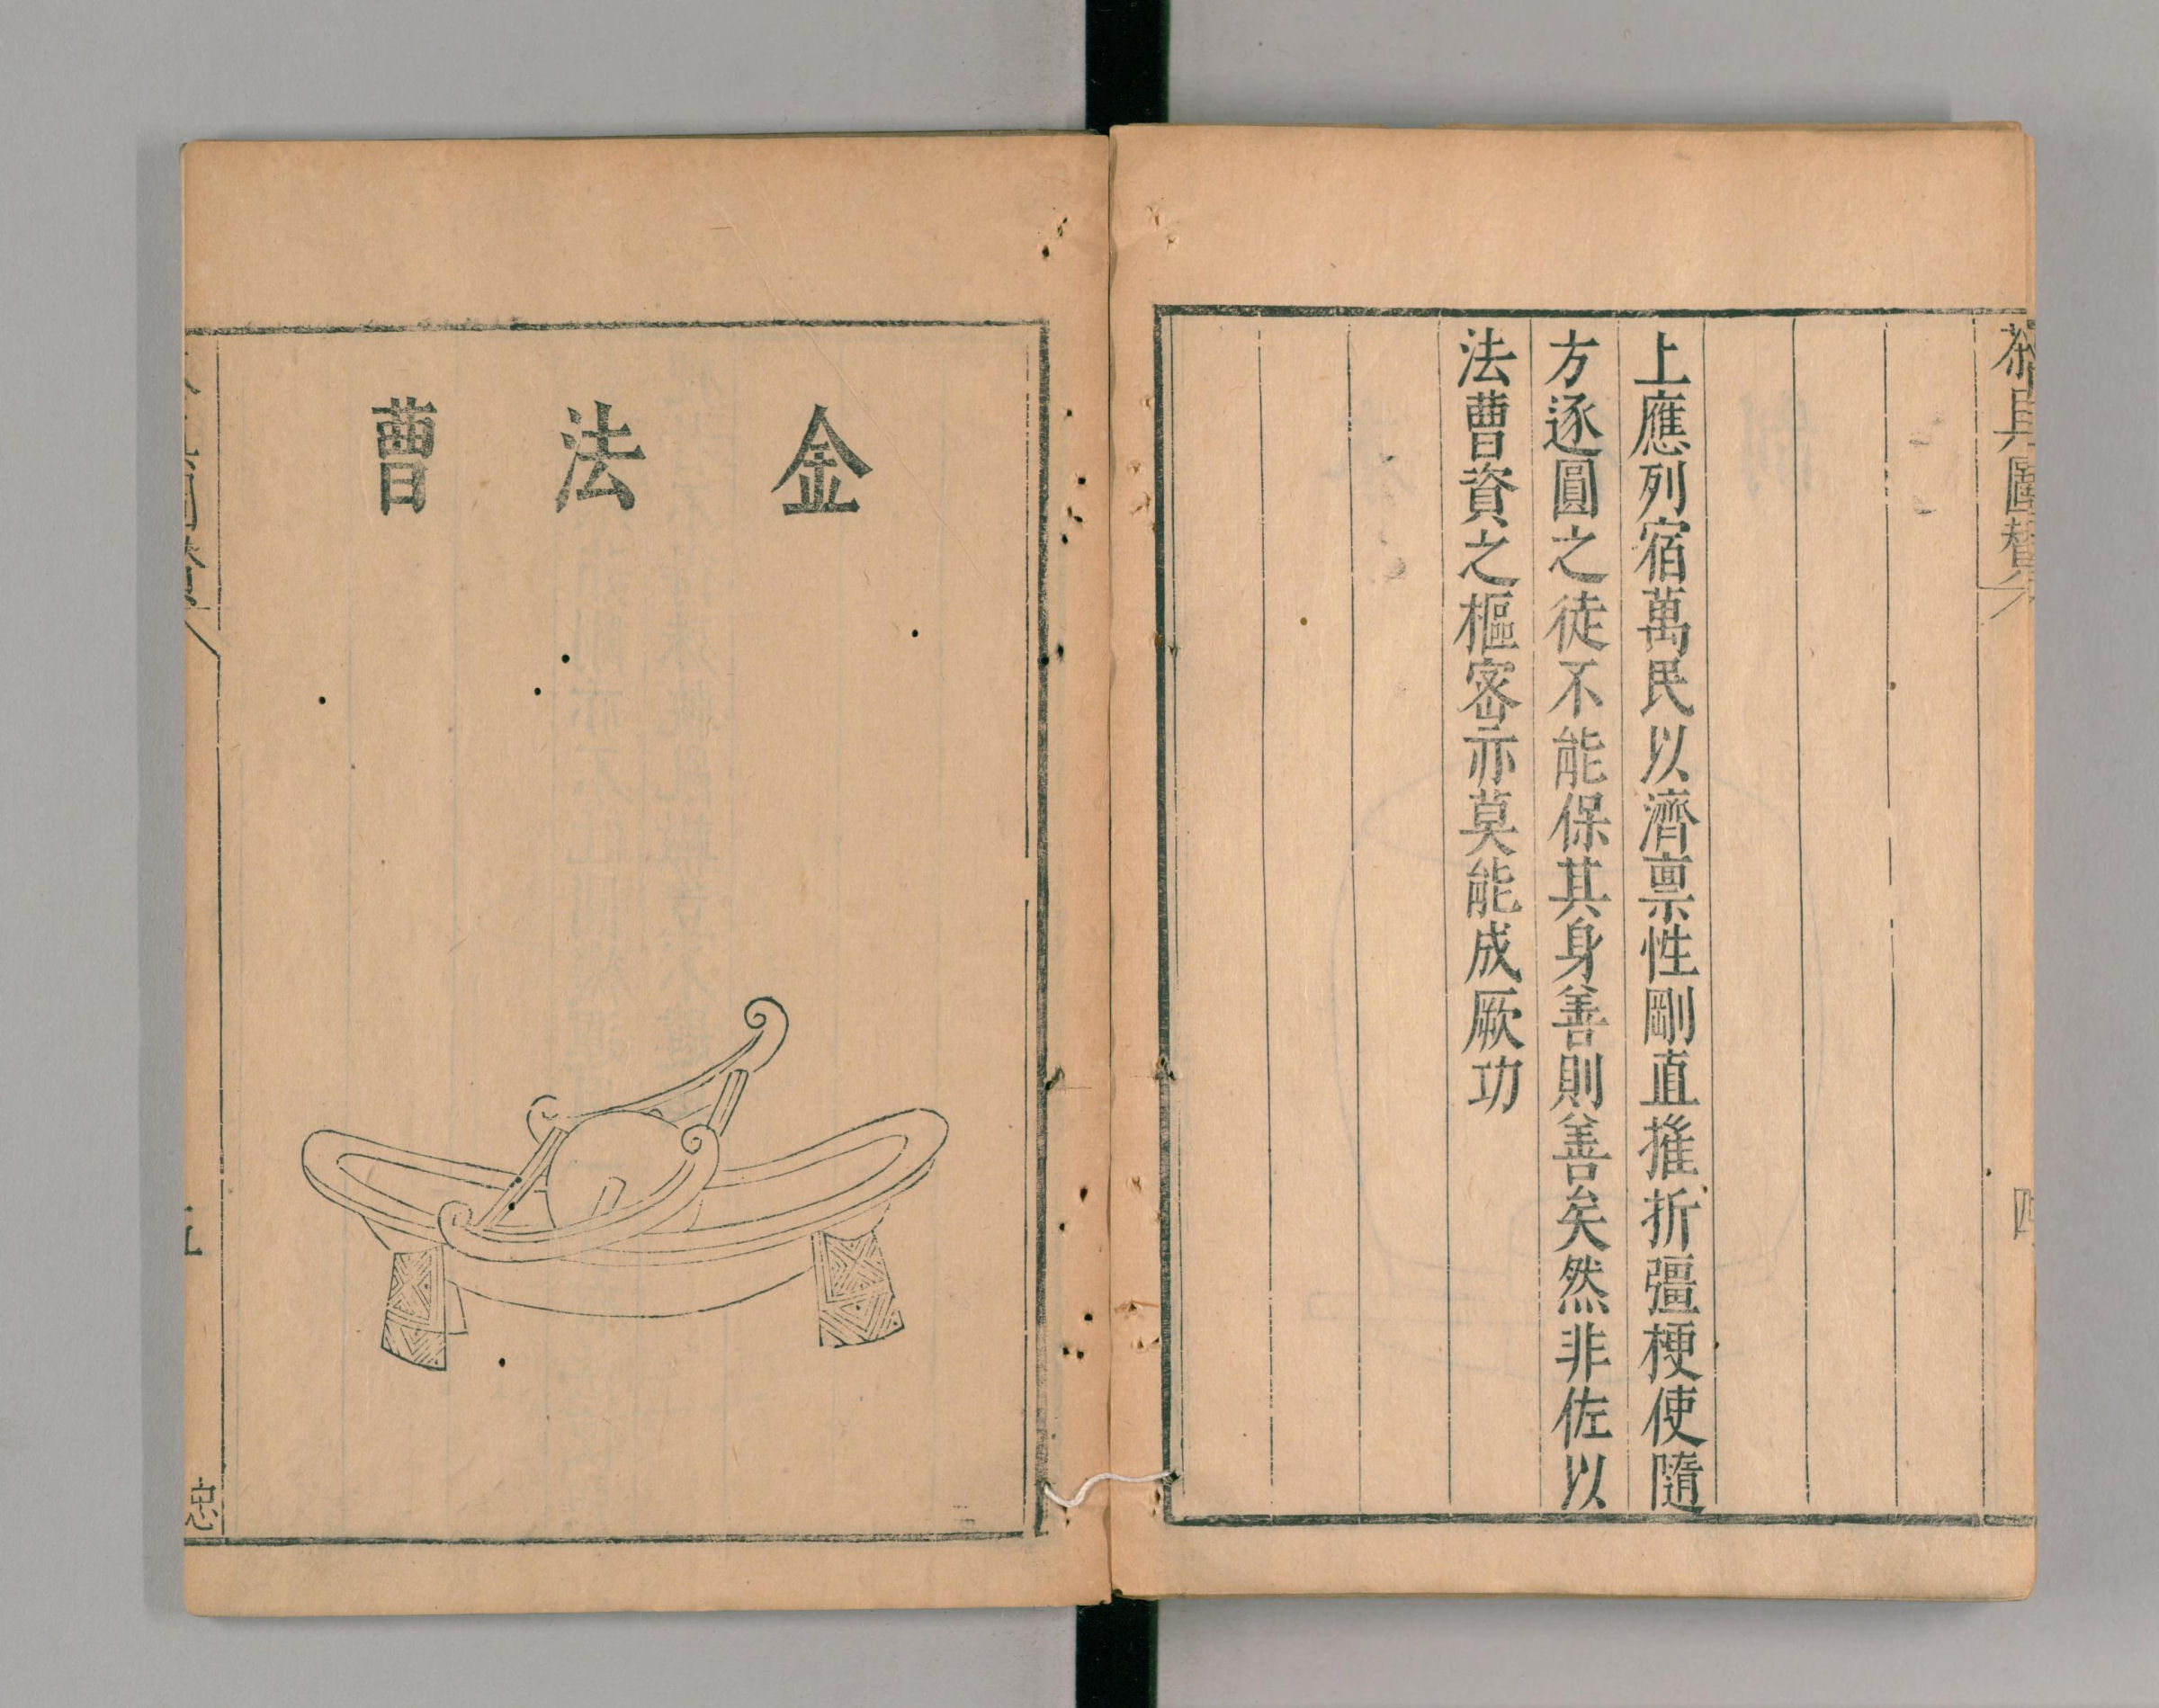 茶具圖贊
四
上應列宿萬民以濟稟性剛直摧折彊梗使隨
方逐圓之徒不能保其身善則善矣然非佐以
法曹資之樞密亦莫能成厥功
金法曹
五
忠